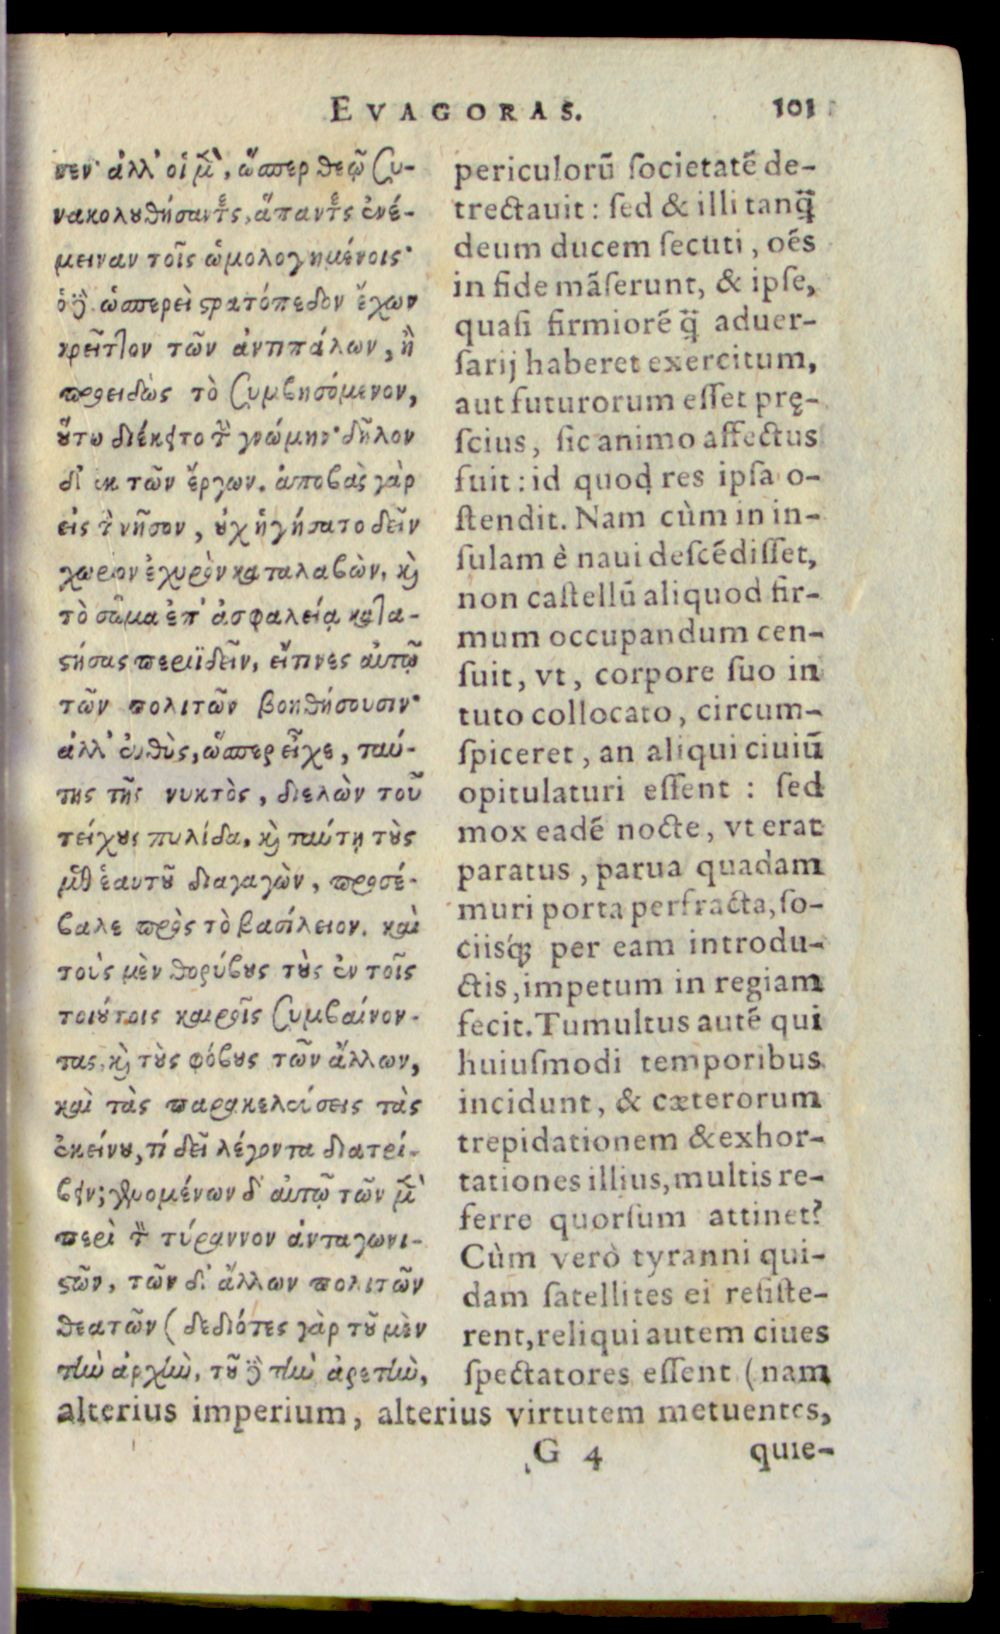 EVAGORAS. 101
πεν· ἀλλ' οἱ μὲν, ὥσπερ θεῷ συ-
νακολουθήσαντες, ἅπαντες ἐνέ-
μειναν τοῖς ὡμολογημένοις·
ὁ δὲ ὡσπερεὶ στρατόπεδον ἔχων
κρεῖττον τῶν ἀντιπάλων, ἢ
προειδὼς τὸ συμβησόμενον,
οὕτω διέκειτο τὴν γνώμην· δῆλον
δ' ἐκ τῶν ἔργων. ἀποβὰς γὰρ
εἰς τὴν νῆσον, οὐχ ἡγήσατο δεῖν
χωρίον ἐχυρὸν καταλαβὼν, καὶ
τὸ σῶμα ἐπ' ἀσφαλείᾳ κατα-
στήσας περιϊδεῖν, εἴ τινες αὐτῷ
τῶν πολιτῶν βοηθήσουσιν·
ἀλλ' εὐθὺς, ὥσπερ εἶχε, ταύ-
της τῆς νυκτὸς, διελὼν τοῦ
τείχους πυλίδα, καὶ ταύτῃ τοὺς
μεθ' ἑαυτοῦ διαγαγὼν, προσέ-
βαλε πρὸς τὸ βασίλειον. καὶ
τοὺς μὲν θορύβους τοὺς ἐν τοῖς
τοιούτοις καιροῖς συμβαίνον-
τας, καὶ τοὺς φόβους τῶν ἄλλων,
καὶ τὰς παρακελεύσεις τὰς
ἐκείνου, τί δεῖ λέγοντα διατρί-
βειν; γενομένων δ' αὐτῷ τῶν μὲν
περὶ τὸν τύραννον ἀνταγωνι-
στῶν, τῶν δ' ἄλλων πολιτῶν
θεατῶν (δεδιότες γὰρ τοῦ μὲν
τὴν ἀρχὴν, τοῦ δὲ τὴν ἀρετὴν,
periculorū societatē de-
trectauit: sed & illi tanq̃
deum ducem secuti, oēs
in fide māserunt, & ipse,
quasi firmiorē q̃ aduer-
sarij haberet exercitum,
aut futurorum esset prę-
scius, sic animo affectus
fuit: id quod res ipsa o-
stendit. Nam cùm in in-
sulam è naui descēdisset,
non castellū aliquod fir-
mum occupandum cen-
suit, vt, corpore suo in
tuto collocato, circum-
spiceret, an aliqui ciuiū
opitulaturi essent: sed
mox eadē nocte, vt erat
paratus, parua quadam
muri porta perfracta, so-
ciisq́; per eam introdu-
ctis, impetum in regiam
fecit. Tumultus autē qui
huiusmodi temporibus
incidunt, & cæterorum
trepidationem & exhor-
tationes illius, multis re-
ferre quorsum attinet?
Cùm verò tyranni qui-
dam satellites ei resiste-
rent, reliqui autem ciues
spectatores essent (nam
alterius imperium, alterius virtutem metuentes,
G 4 quie-